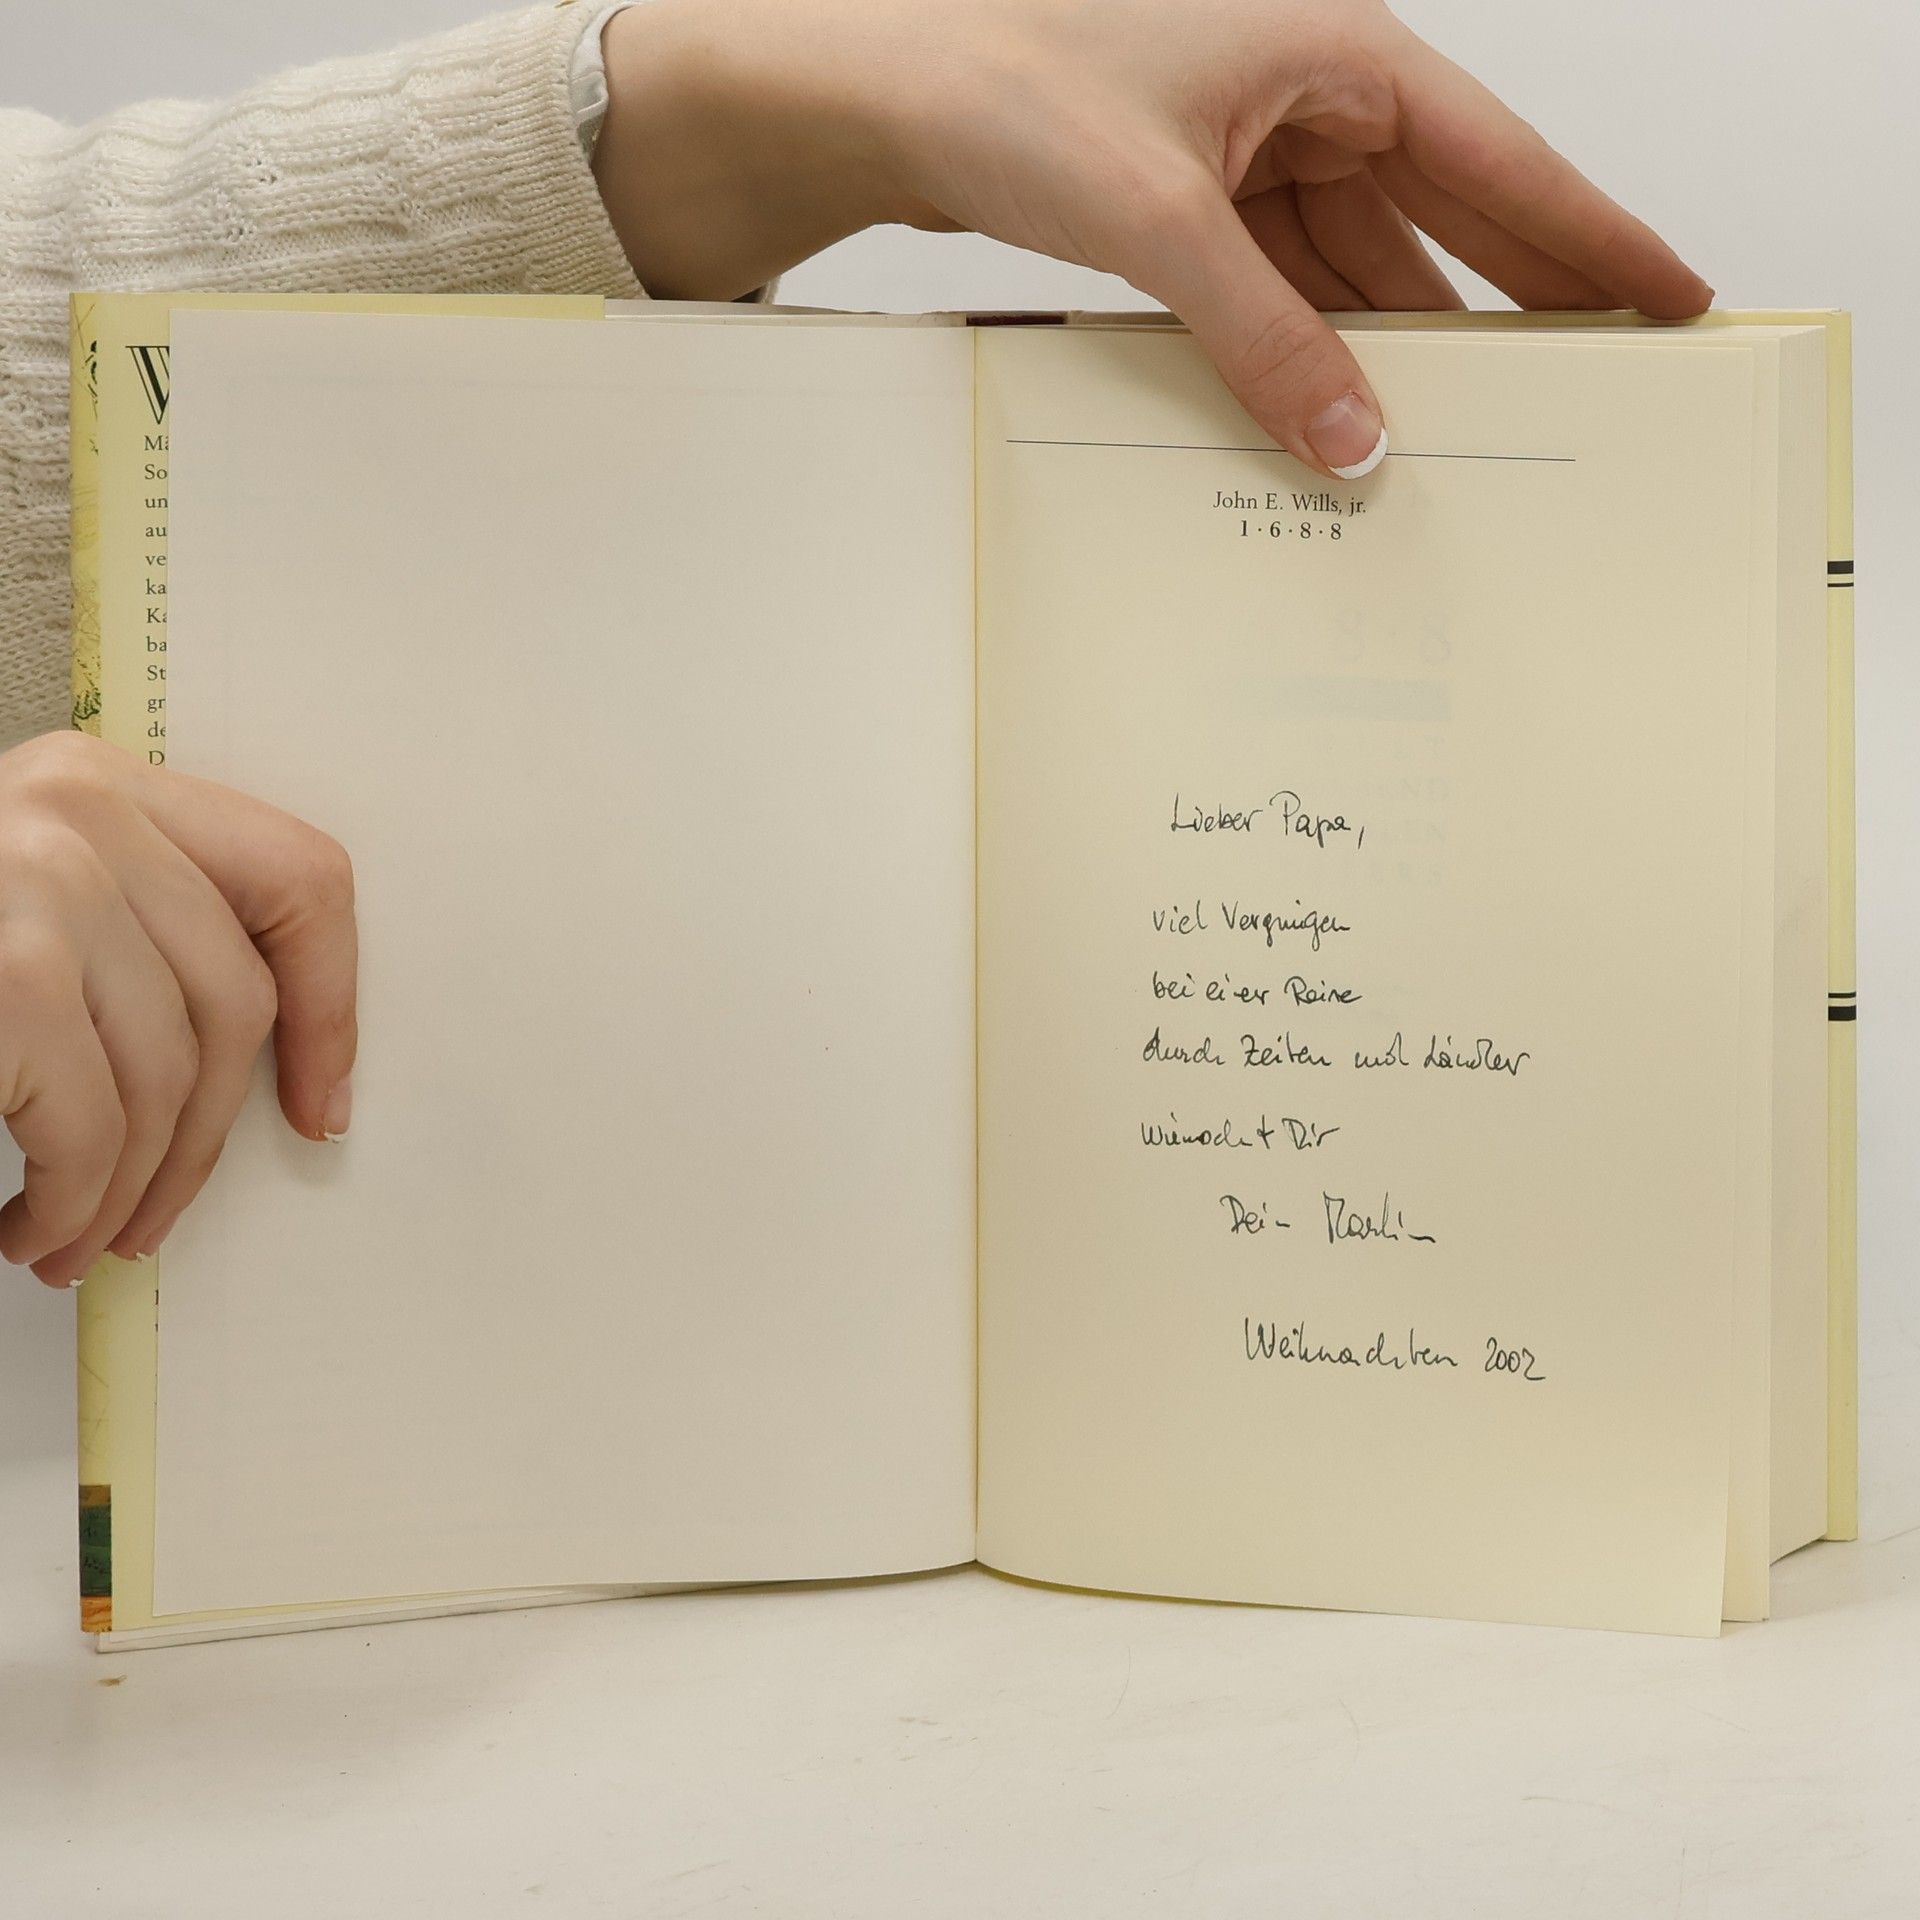 W
Mä
So
un
au
ve
ka
Ka
ba
St
gr
de
D
John E. Wills, jr.
1·6·8·8
Lieber Papa,
viel Vergnügen
bei einer Reise
durch Zeiten und Länder
wünscht Dir
Dein Martin
Weihnachten 2002